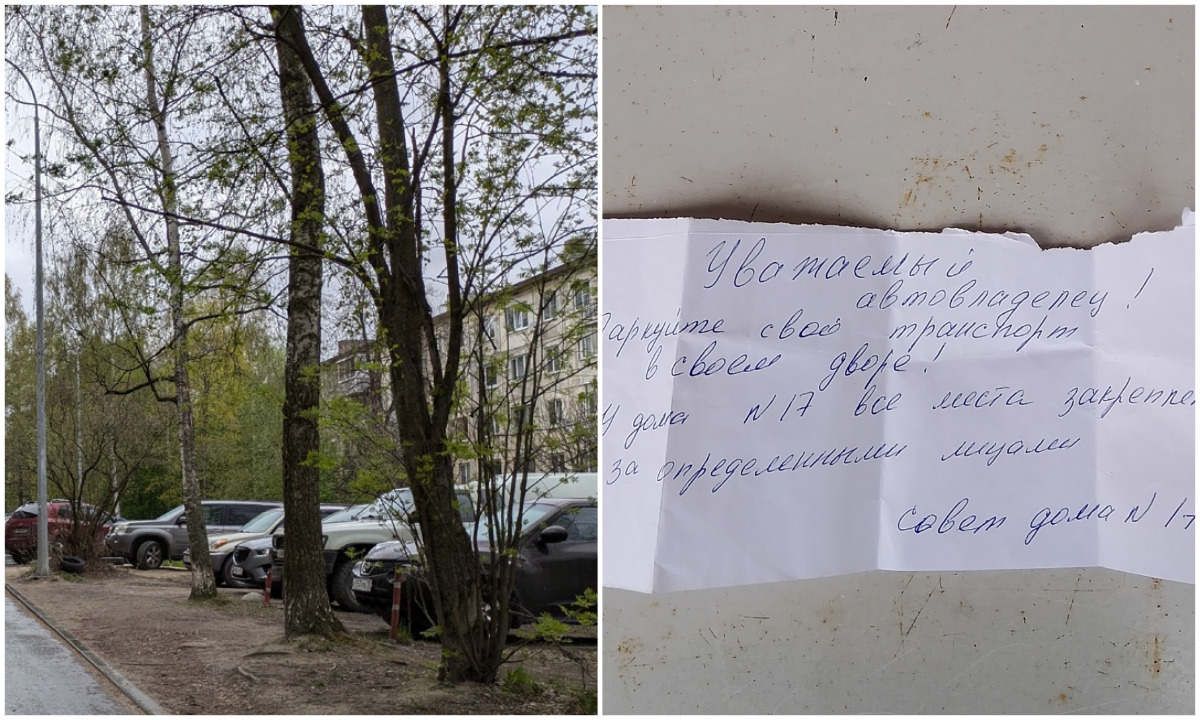 Уважаемый
автовладелец!
Паркуйте свой транспорт
в своем дворе!
У дома N 17 все места закреплен
за определенными лицами
Совет дома N 17